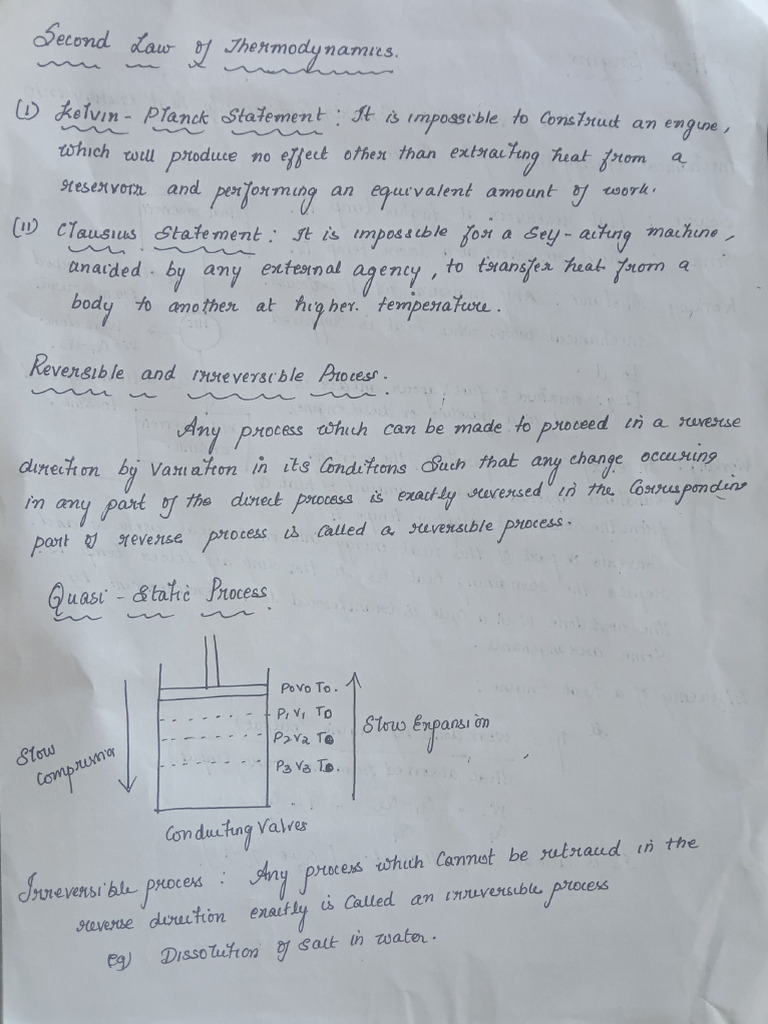 Second Law of Thermodynamics.
(I) Kelvin - Planck Statement : It is impossible to Construct an engine,
which will produce no effect other than extracting heat from a
reservoir and performing an equivalent amount of work.
(II) Clausius Statement : It is impossible for a Sey-acting machine,
anaided. by any external agency, to transfer heat from a
body to another at higher. temperature.
Reversible and irreversible Process.
Any process which can be made to proceed in a reverse
direction by Variation in its Conditions Such that any change occuring
in any part of the direct process is exactly reversed in the Correspondin
part of reverse process is called a reversible process.
Quasi - Static Process.
P0V0 T0.
P1V1 T0
P2V2 T0
P3V3 T0.
Slow Expansion
Slow
Compression
Conducting Valves
Irreversible process : Any process which Cannot be retraud in the
reverse direction exactly is Called an irreversible process
eg) Dissolution of Salt in water.